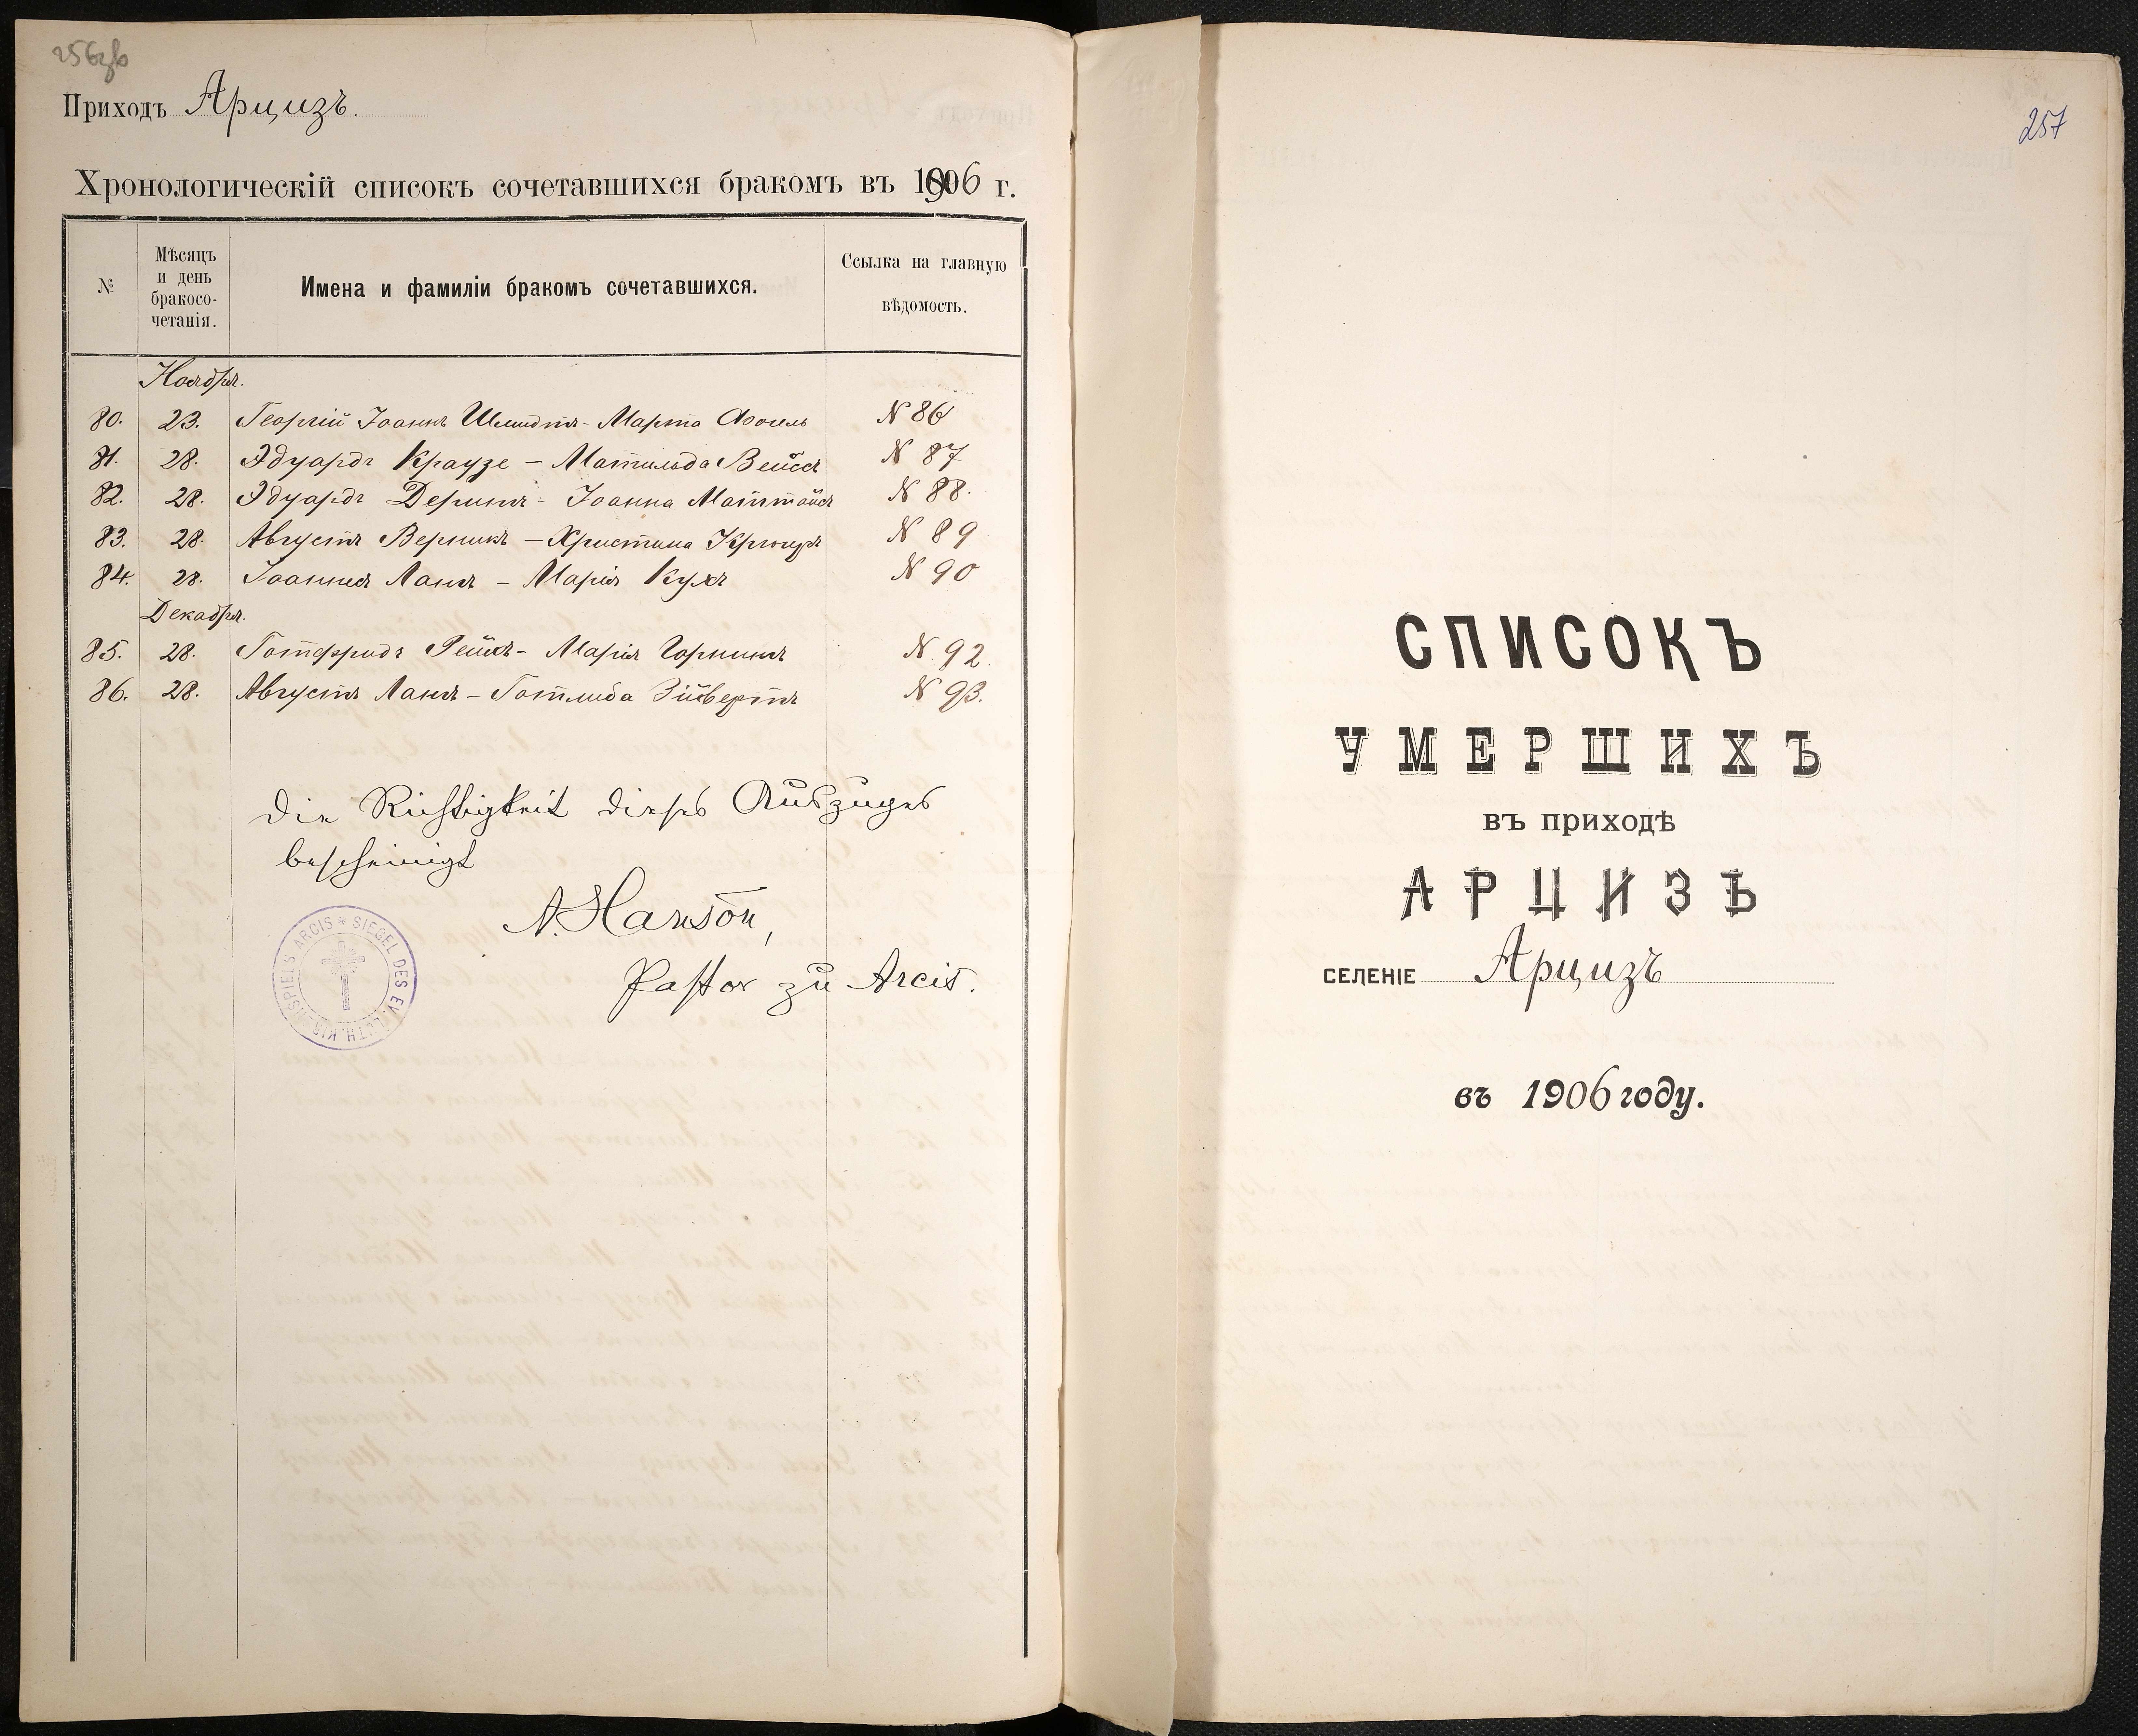 256об
Приходъ Арцизъ.
Хронологическій списокъ сочетавшихся бракомъ въ 1906 г.
№
Мѣсяцъ
и день
бракосо-
четанія.
Имена и фамиліи бракомъ сочетавшихся.
Ссылка на главную
вѣдомость.
Ноября.
80. 23. Георгій Іоаннъ Шмидтъ - Марта Фогель N 86
81. 28. Эдуардъ Краузе - Матильда Вейсъ N 87
82. 28. Эдуардъ Іоанна N 88.
83. 28. Августъ Верникъ - Христина Крюгеръ N 89
84. 28. Іоаннесъ Ланъ - Марія Кухъ N 90
Декабря.
85. 28. Готфридъ Рейхъ - Марія Горнингъ N 92.
86. 28. Августъ Ланъ - Готлиба Зивертъ N 93.
Die Richtigkeit dieses Auszuges
bescheinigt
A. Hanson,
Pastor zu Arcis.
SIEGEL DES EV. LUTH. KIRCHSPIELS ARCIS
257
СПИСОКЪ
УМЕРШИХЪ
въ приходѣ
АРЦИЗЪ
СЕЛЕНІЕ Арцизъ
въ 1906 году.